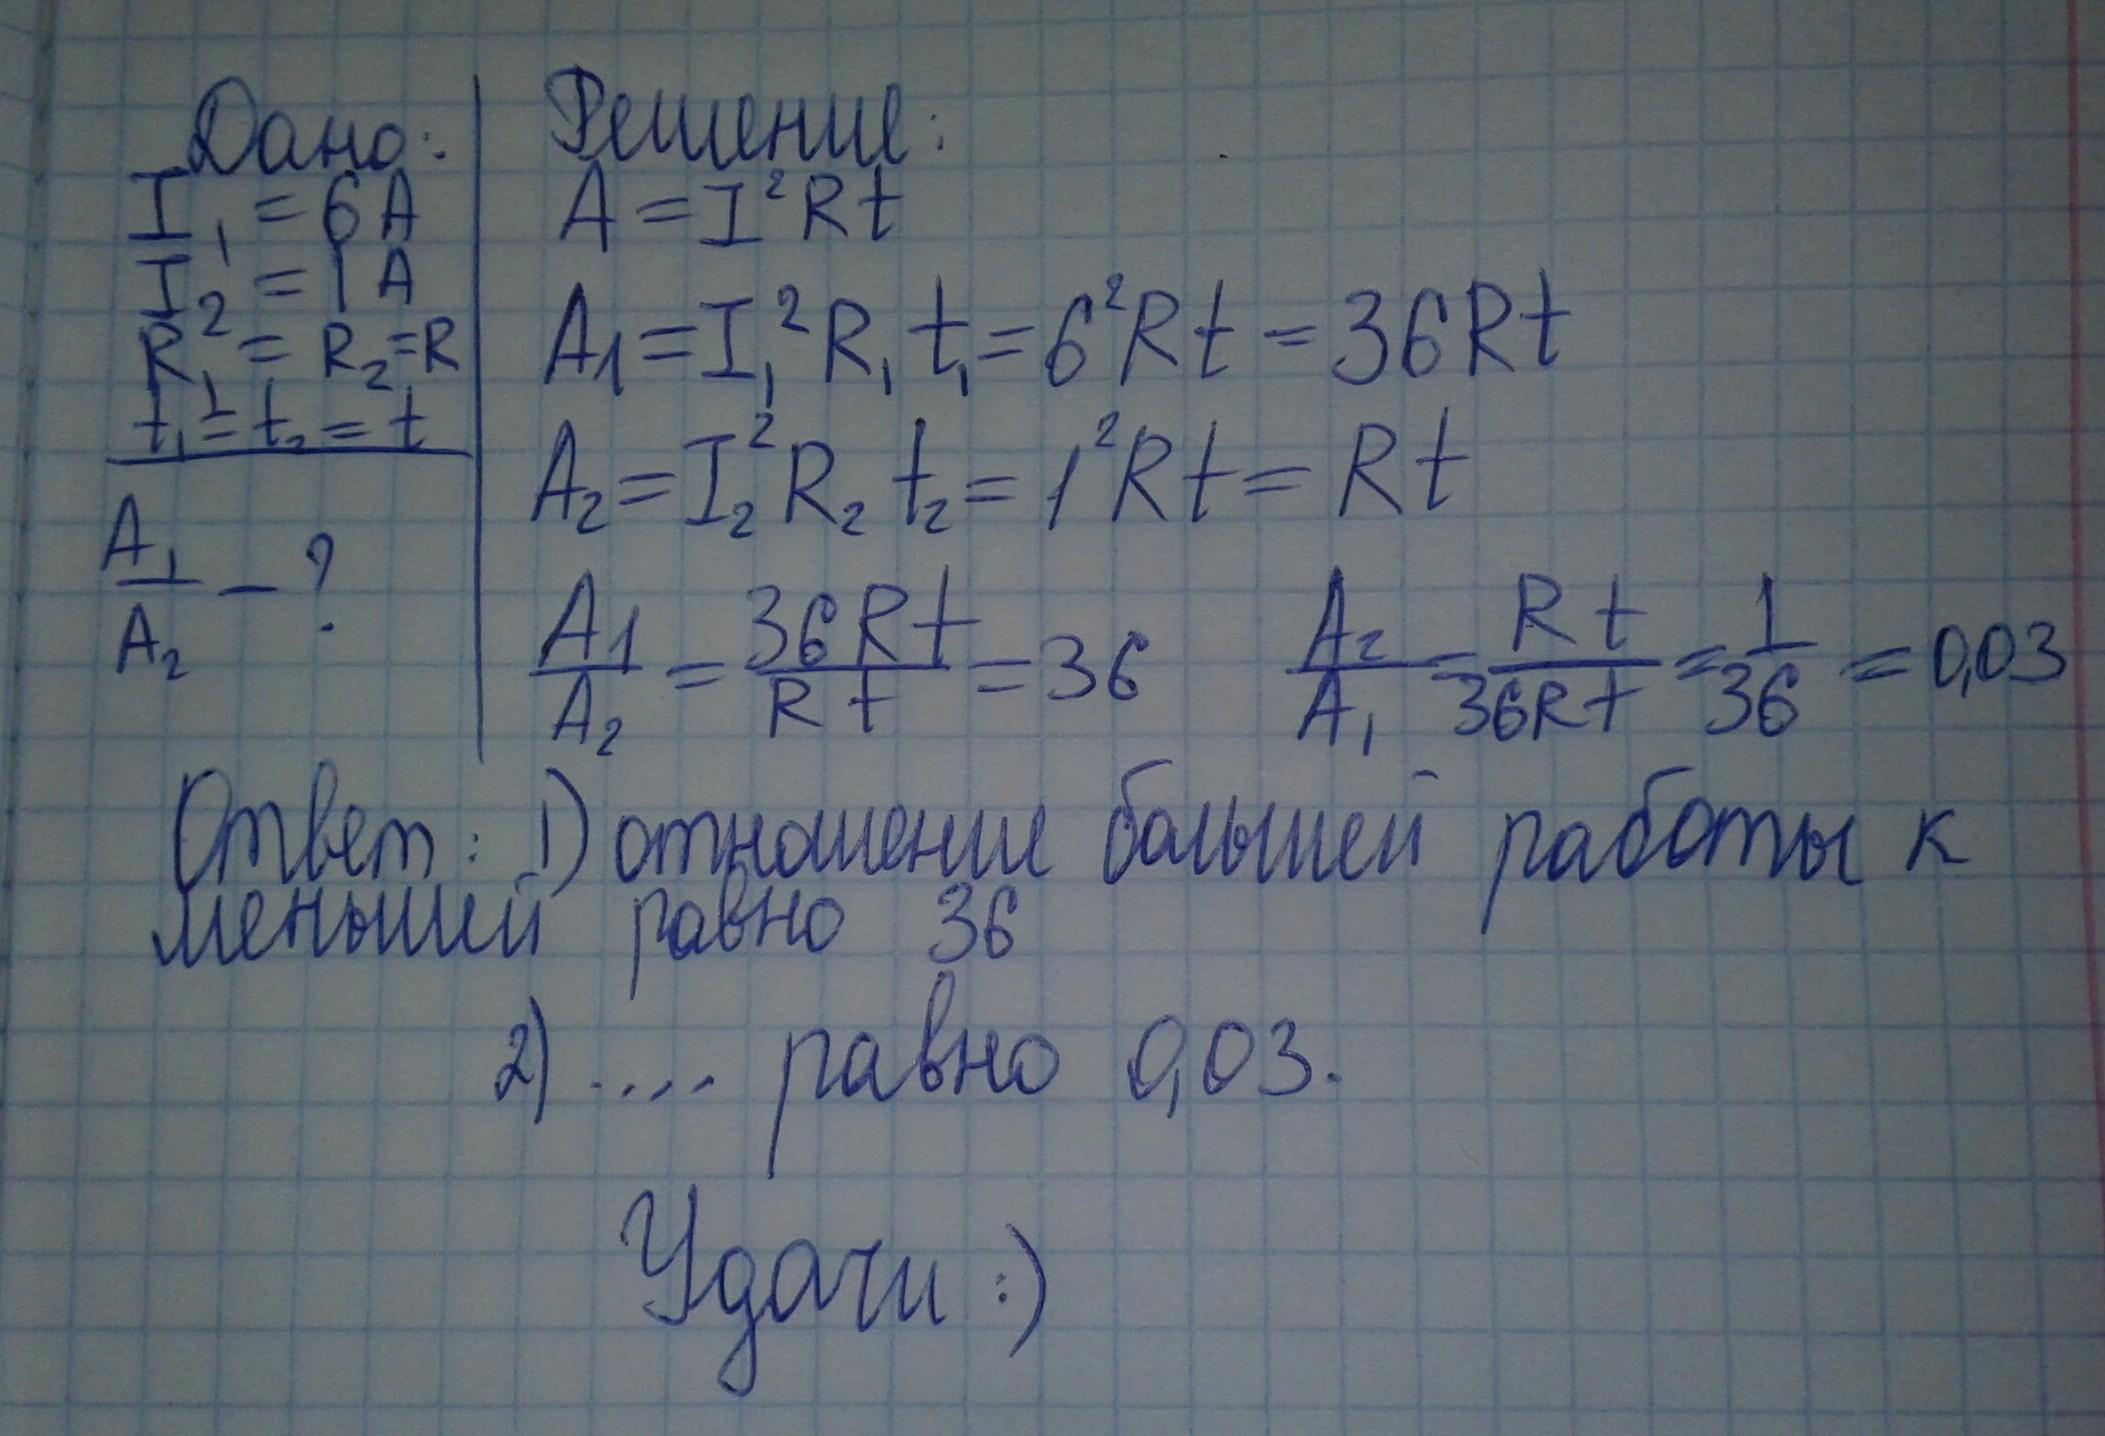 Дано:
I₁ = 6 A
I₂ = 1 A
R₁ = R₂ = R
t₁ = t₂ = t
A₁/A₂ – ?
Решение:
A = I²Rt
A1 = I₁²R₁t₁ = 6²Rt = 36Rt
A₂ = I₂²R₂t₂ = 1²Rt = Rt
A1/A₂ = 36Rt/Rt = 36 A₂/A₁ = Rt/36Rt = 1/36 = 0,03
Ответ: 1) отношение большей работы к
меньшей равно 36
2) .... равно 0,03.
Удачи :)